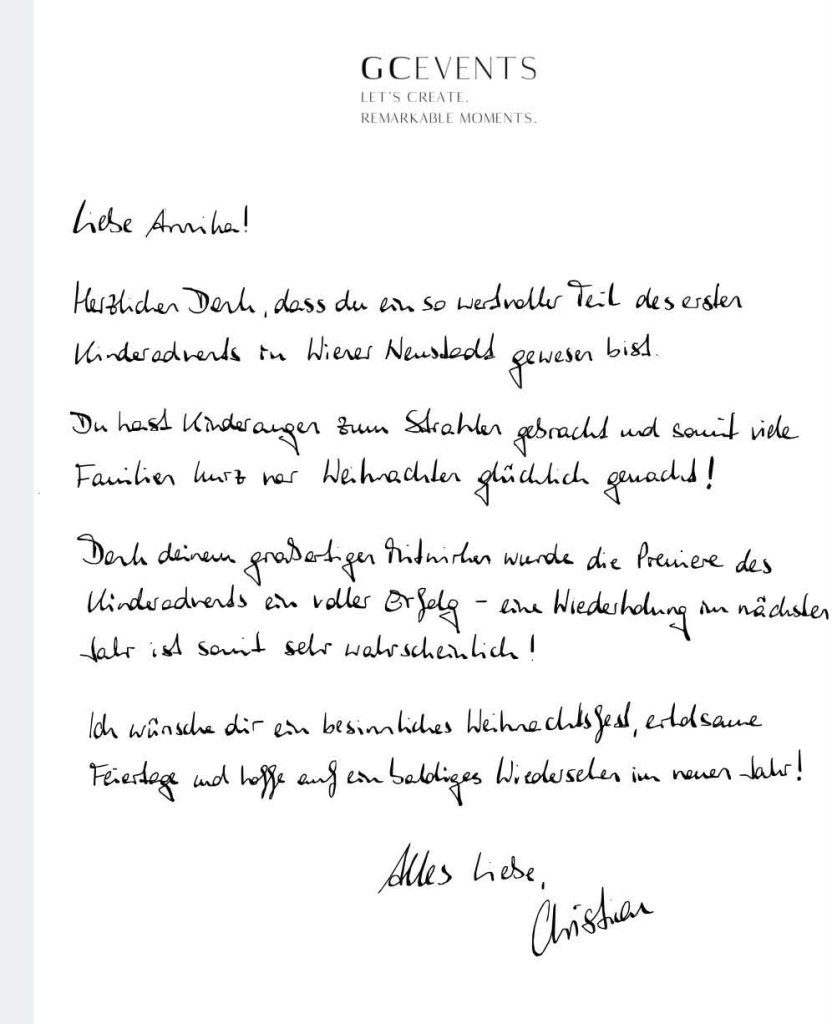 GCEVENTS
LET'S CREATE.
REMARKABLE MOMENTS.
Liebe Annika!
Herzlichen Dank, dass du ein so wertvoller Teil des ersten
Kinderadvents in Wiener Neustadt gewesen bist.
Du hast Kinderaugen zum Strahlen gebracht und somit viele
Familien kurz vor Weihnachten glücklich gemacht!
Dank deinem großartigen Mitwirken wurde die Premiere des
Kinderadvents ein voller Erfolg - eine Wiederholung im nächsten
Jahr ist somit sehr wahrscheinlich!
Ich wünsche dir ein besinnliches Weihnachtsfest, erholsame
Feiertage und hoffe auf ein baldiges Wiedersehen im neuen Jahr!
Alles Liebe,
Christian